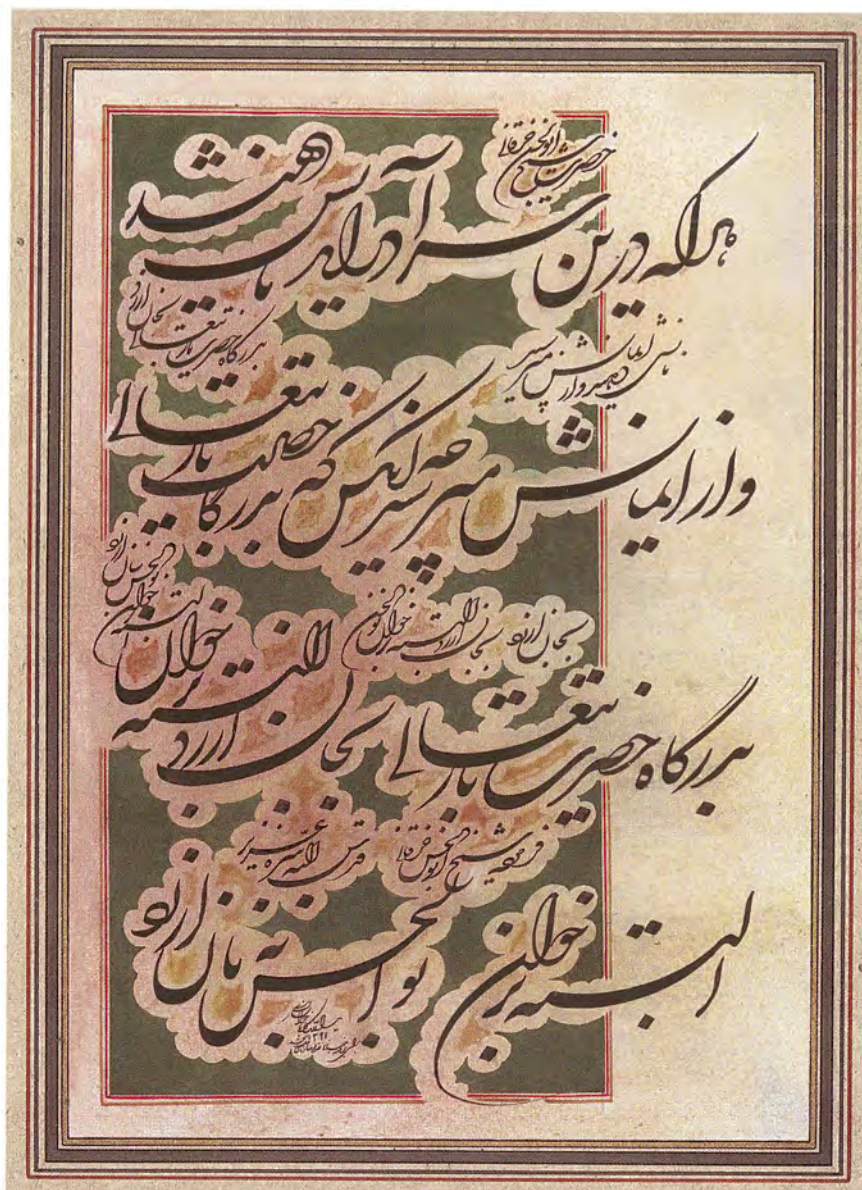 حضرت شیخ ابوالحسن خرقانی
هر آنکه درین سرا درآید نانش دهند
بدرگاه حضرت باریتعالی بجان ارزد
نانش دهید و از ایمانش مپرسید
و از ایمانش مپرسید چه آنکس که بدرگاه حضرت باریتعالی
بجان ارزد البته بر خوان بوالحسن بنان ارزد
بجان ارزد
بدرگاه حضرت باریتعالی بجان ارزد البته بر خوان
فرموده شیخ ابوالحسن خرقانی قدس الله سره عزیز
البته بر خوان بوالحسن به نان ارزد